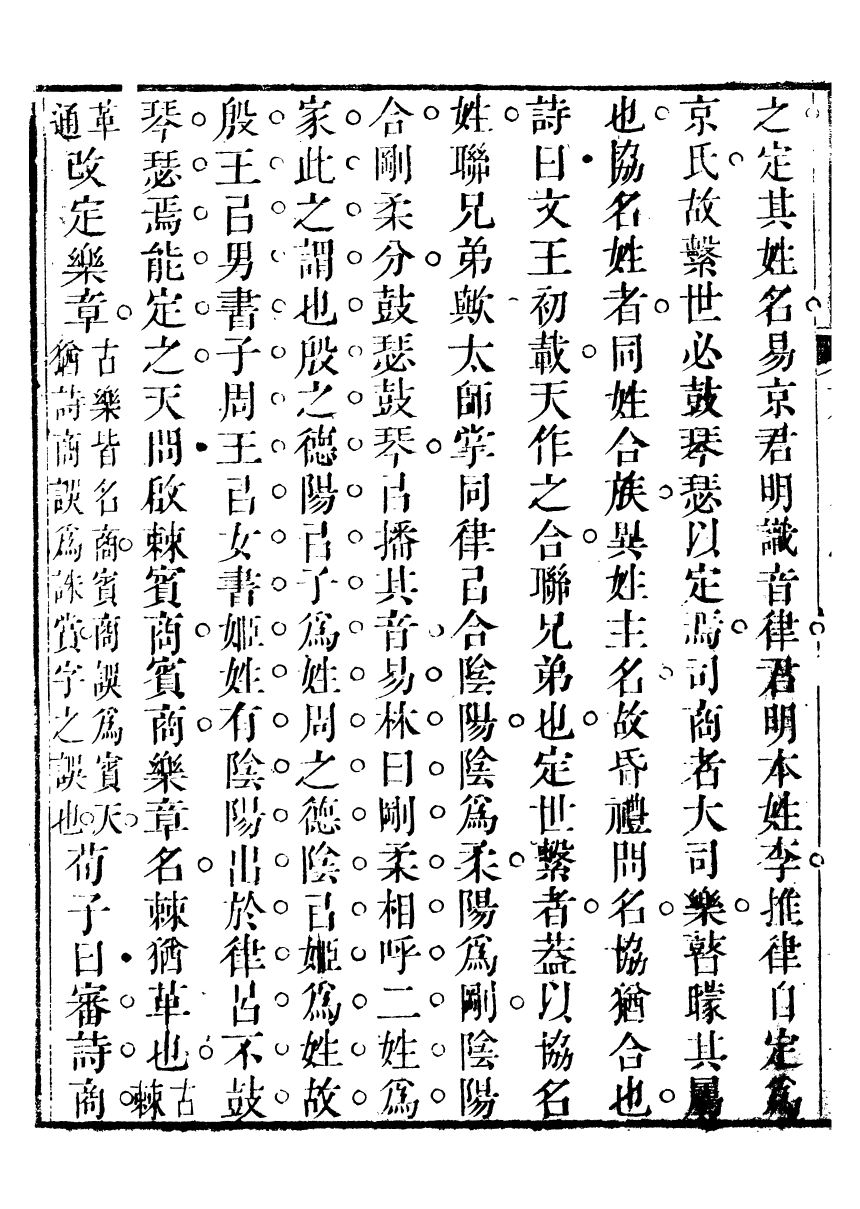 之定其姓名易京君明識音律君明本姓李推律自定爲
京氏故繫世必鼓琴瑟以定焉司商者大司樂瞽矇其屬
也協名姓者同姓合族異姓主名故昏禮問名協猶合也
詩曰文王初載天作之合聯兄弟也定世繫者葢以協名
姓聯兄弟歟太師掌同律㠯合陰陽陰爲柔陽爲剛陰陽
合剛柔分鼓瑟鼓琴㠯播其音易林曰剛柔相呼二姓爲
家此之謂也殷之德陽㠯子爲姓周之德陰㠯姬爲姓故
殷王㠯男書子周王㠯女書姬姓有陰陽出於律呂不鼓
琴瑟焉能定之天問啟棘賓商賓商樂章名棘猶革也古棘
革通改定樂章古樂皆名商賓商誤爲賓天猶詩商誤爲誅賞字之誤也荀子曰審詩商